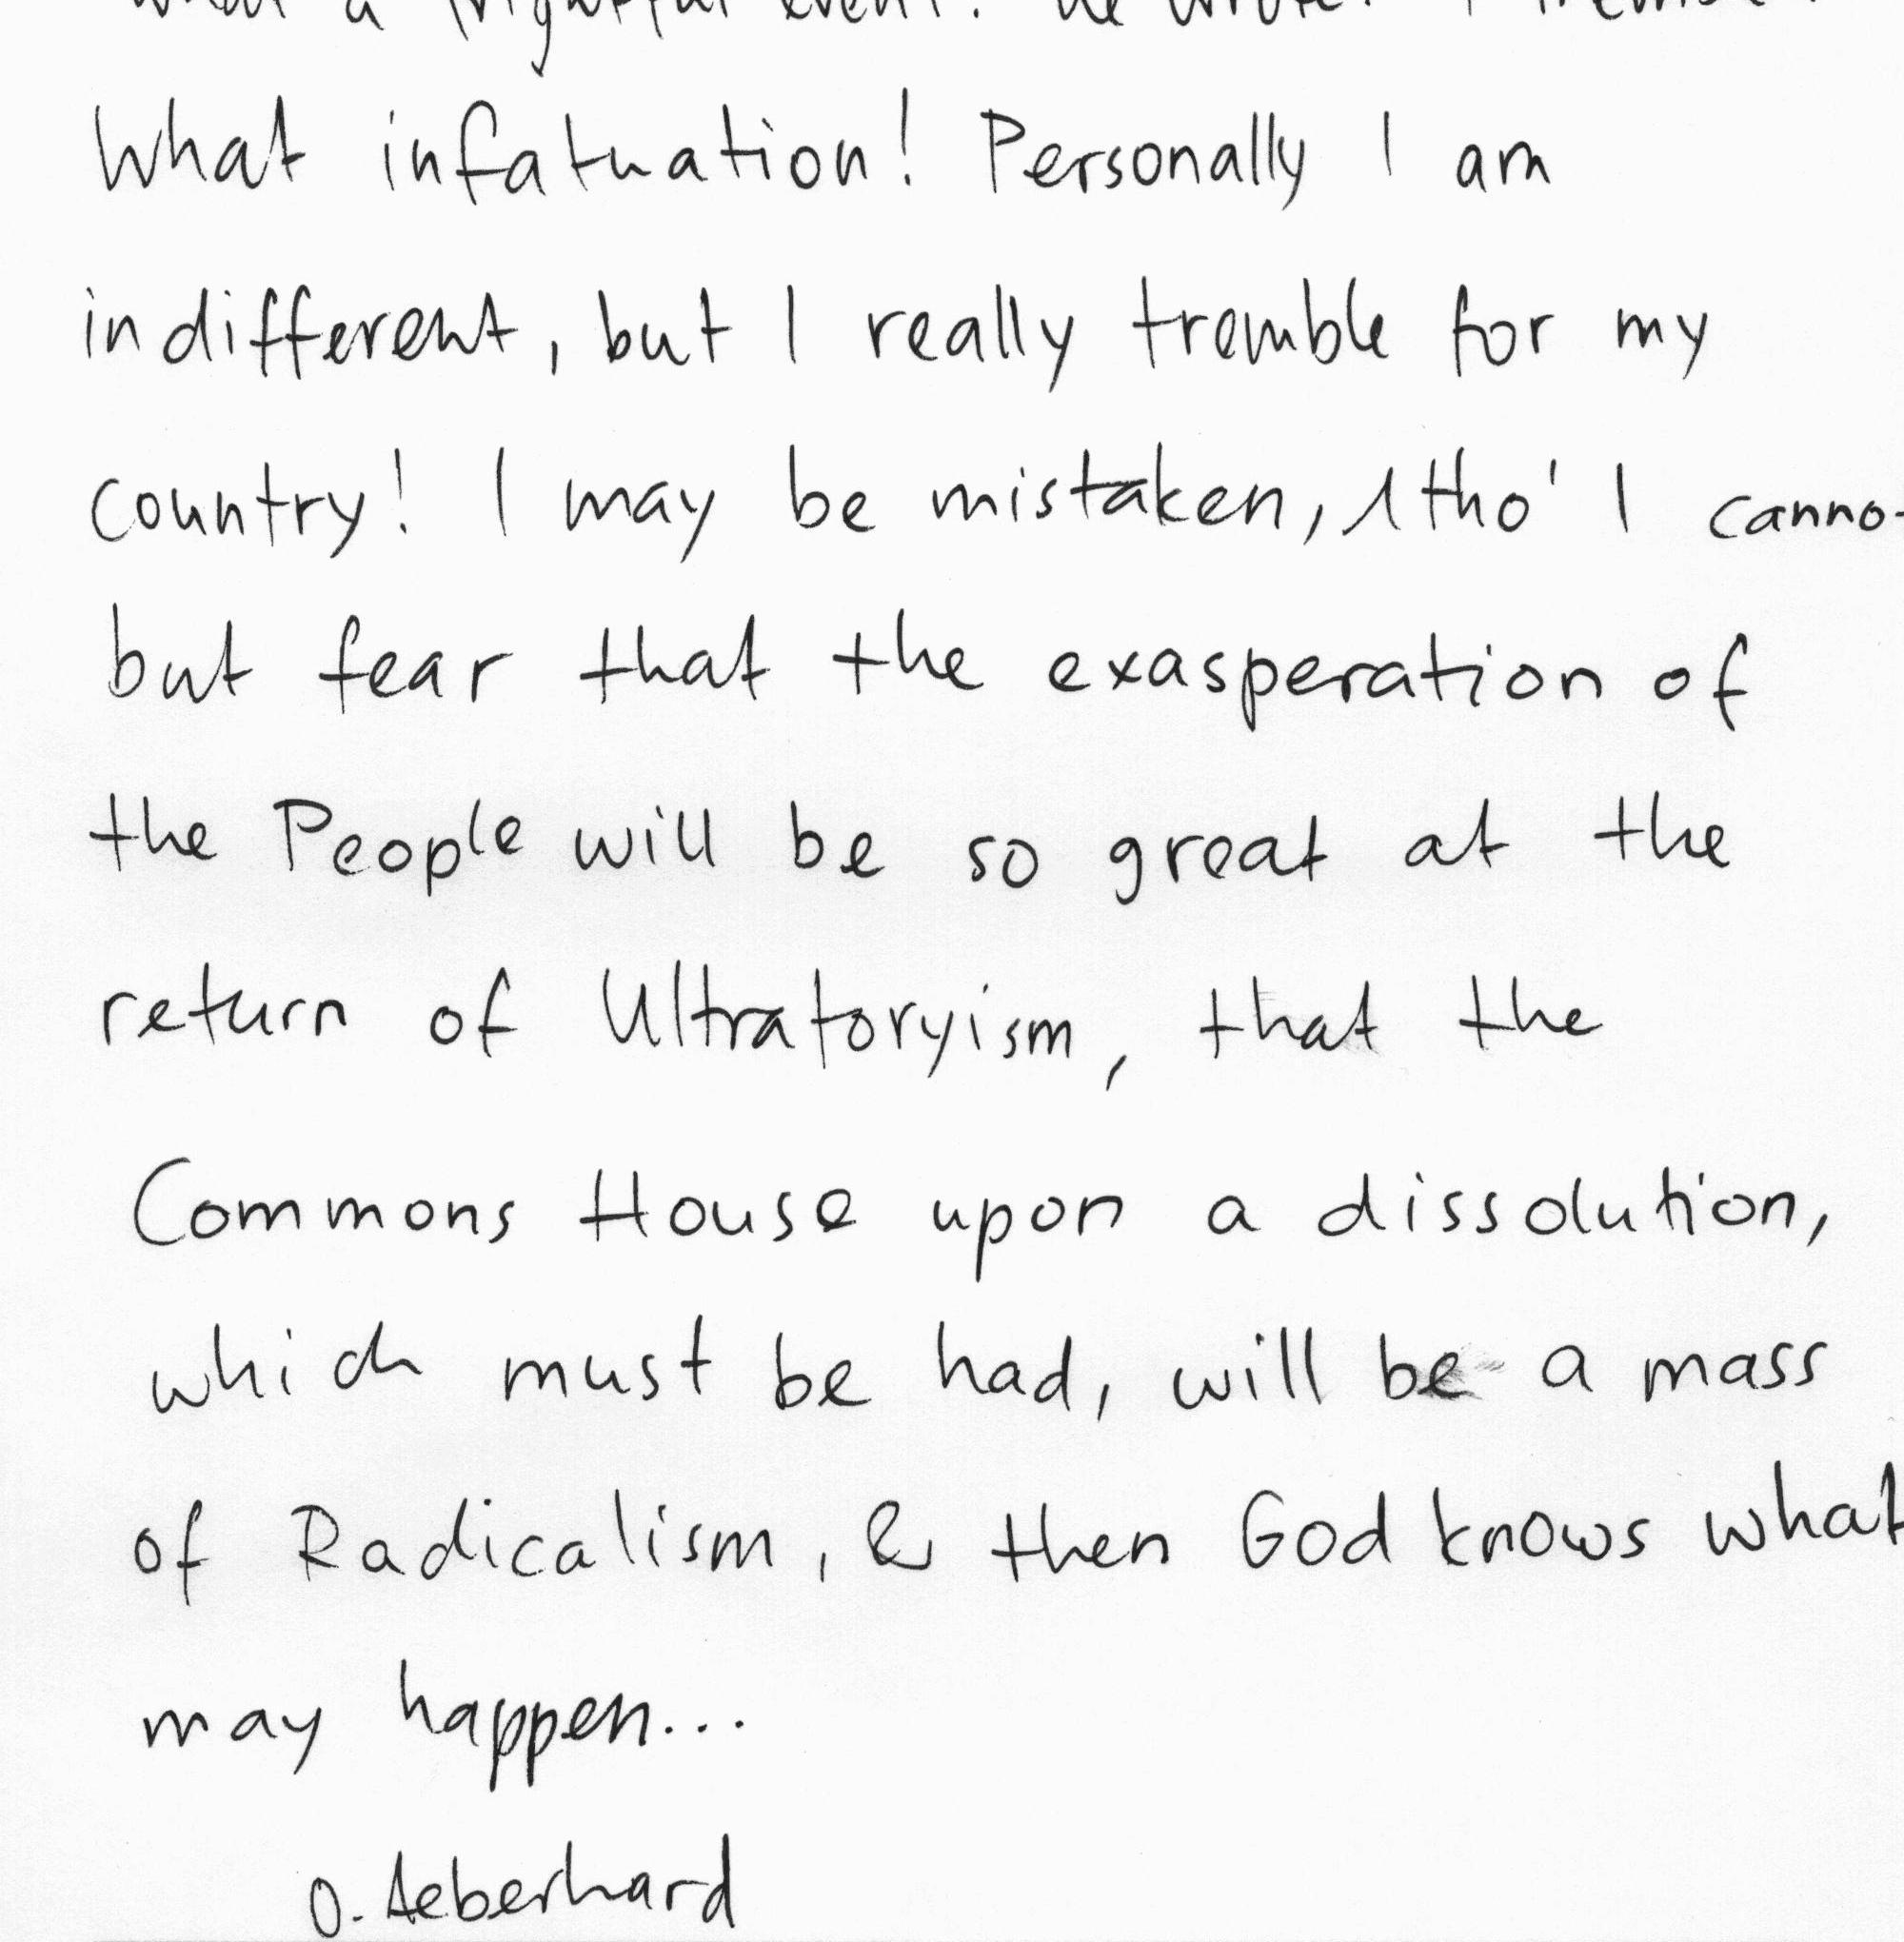 What infatuation! Personally I am
indifferent, but I really tremble for my
country! I may be mistaken, Altho' I canno
but fear that the exasperation of
the People will be so great at the
return of Ultratoryism, that the
Commons House upon a dissolution,
which must be had, will be a mass
of Radicalism, & then God knows what
may happen...
O. Aeberhard